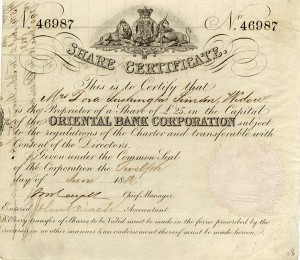 No. 46987 No. 46987
SHARE CERTIFICATE.
This is to Certify that
Mrs Dora Widow
is the Proprietor of a Share of £25, in the Capital
of the ORIENTAL BANK CORPORATION subject
to the regulations of the Charter and transferable with
Consent of the Directors.
Given under the Common Seal
of the Corporation the Twelfth
day of June 18
Chief Manager.
Entered Accountant.
Every transfer of Shares to be Valid must be made in the form prescribed by the
in no other manner & an endorsement thereof must be made hereon.